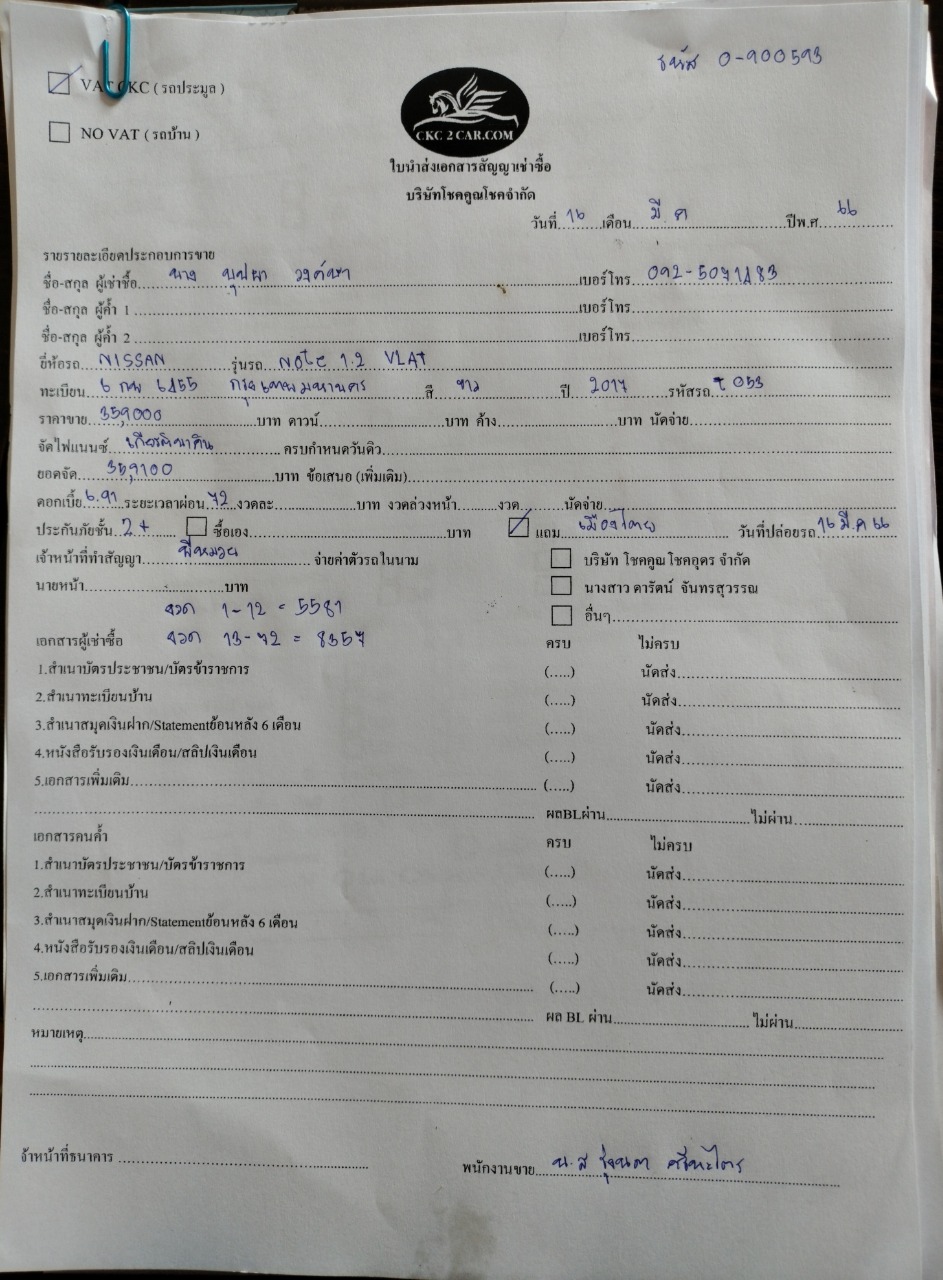 รหัส 0-900593
VAT CKC ( รถประมูล )
NO VAT ( รถบ้าน )
CKC 2 CAR.COM
ใบนำส่งเอกสารสัญญาเช่าซื้อ
บริษัทโชคคูณโชคจำกัด
วันที่ 16 เดือน มี ค ปีพ.ศ. 66
รายรายละเอียดประกอบการขาย
ชื่อ-สกุล ผู้เช่าซื้อ นาง บุปผา เบอร์โทร 092-5071183
ชื่อ-สกุล ผู้ค้ำ 1 เบอร์โทร
ชื่อ-สกุล ผู้ค้ำ 2 เบอร์โทร
ยี่ห้อรถ NISSAN รุ่นรถ NOTE 1.2 VLAT
ทะเบียน 6 กฬ 6455 กรุงเทพมหานคร สี ขาว ปี 2017 รหัสรถ T 053
ราคาขาย 359,000 บาท ดาวน์ บาท ค้าง บาท นัดจ่าย
จัดไฟแนนซ์ เกียรตินาคิน ครบกำหนดวันดิว
ยอดจัด 359,100 บาท ข้อเสนอ (เพิ่มเติม)
ดอกเบี้ย 6.91 ระยะเวลาผ่อน 72 งวดละ บาท งวดล่วงหน้า งวด นัดจ่าย
ประกันภัยชั้น 2+ ซื้อเอง บาท แถม เมืองไทย วันที่ปล่อยรถ 16 มี.ค 66
เจ้าหน้าที่ทำสัญญา พี่หมวย จ่ายค่าตัวรถในนาม บริษัท โชคคูณ โชคอุดร จำกัด
นายหน้า บาท นางสาว ดารัตน์ จันทรสุวรรณ
งวด 1-12 = 5581 อื่นๆ
งวด 13-72 = 8357
เอกสารผู้เช่าซื้อ ครบ ไม่ครบ
1.สำเนาบัตรประชาชน/บัตรข้าราชการ (.....) นัดส่ง
2.สำเนาทะเบียนบ้าน (.....) นัดส่ง
3.สำเนาสมุดเงินฝาก/Statementย้อนหลัง 6 เดือน (.....) นัดส่ง
4.หนังสือรับรองเงินเดือน/สลิปเงินเดือน (.....) นัดส่ง
5.เอกสารเพิ่มเติม (.....) นัดส่ง
ผลBLผ่าน ไม่ผ่าน
เอกสารคนค้ำ ครบ ไม่ครบ
1.สำเนาบัตรประชาชน/บัตรข้าราชการ (.....) นัดส่ง
2.สำเนาทะเบียนบ้าน (.....) นัดส่ง
3.สำเนาสมุดเงินฝาก/Statementย้อนหลัง 6 เดือน (.....) นัดส่ง
4.หนังสือรับรองเงินเดือน/สลิปเงินเดือน (.....) นัดส่ง
5.เอกสารเพิ่มเติม (.....) นัดส่ง
ผล BL ผ่าน ไม่ผ่าน
หมายเหตุ
จ้าหน้าที่ธนาคาร พนักงานขาย น.ส